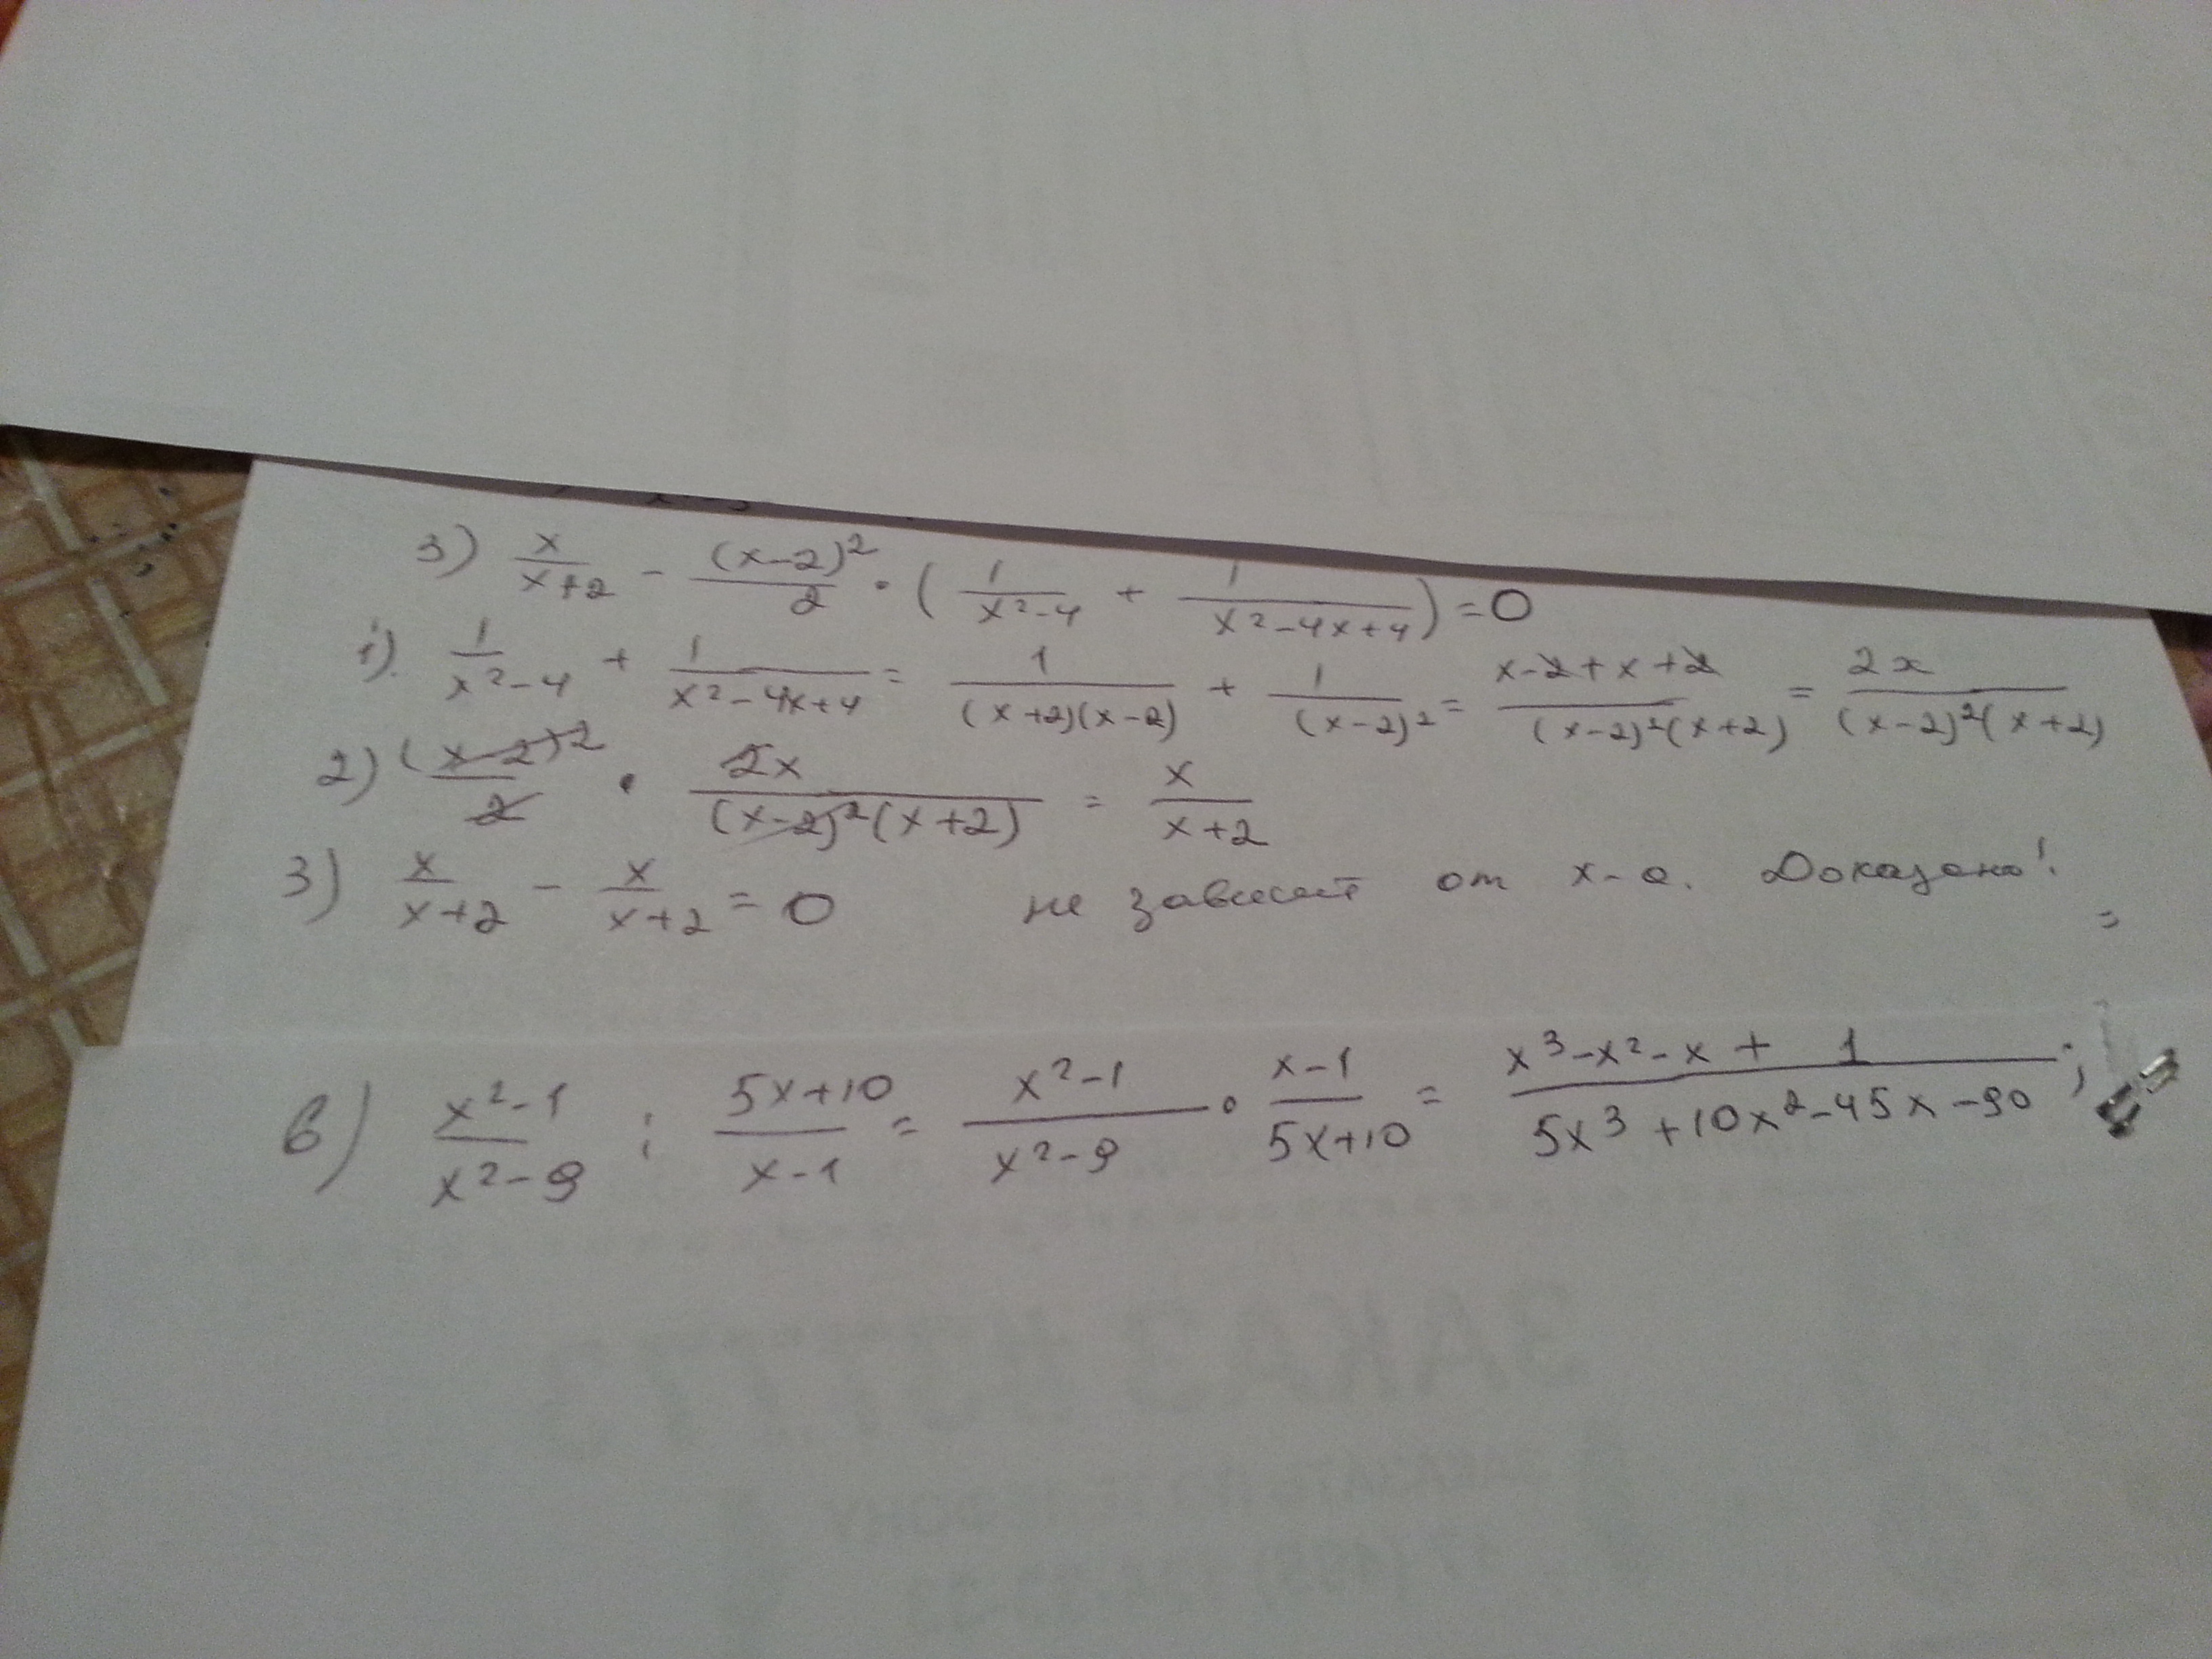 3) x/(x+2) - (x-2)²/2 · (1/(x²-4) + 1/(x²-4x+4)) = 0
1). 1/(x²-4) + 1/(x²-4x+4) = 1/((x+2)(x-2)) + 1/(x-2)² = (x-2+x+2)/((x-2)²(x+2)) = 2x/((x-2)²(x+2))
2) (x-2)²/2 · 2x/((x-2)²(x+2)) = x/(x+2)
3) x/(x+2) - x/(x+2) = 0 не зависит от х-а. Доказано!
=
в) (x²-1)/(x²-9) : (5x+10)/(x-1) = (x²-1)/(x²-9) · (x-1)/(5x+10) = (x³-x²-x+1)/(5x³+10x²-45x-90) ;
ЗАКАЗ